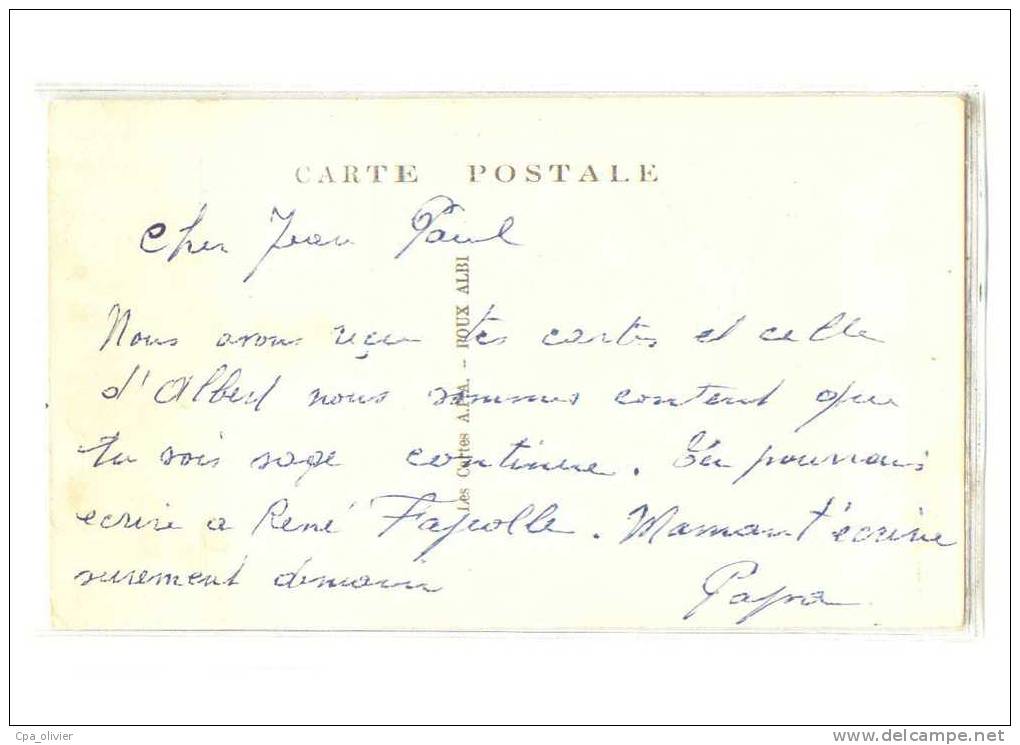 CARTE POSTALE
Cher Jean Paul
Nous avons reçu tes cartes et celle
d'Albert nous sommes content que
tu sois sage continue. Tu pourrais
ecrire a René Fapolle. Maman t'écrire
surement demain
Papa
Les Cartes A.P.A. - POUX ALBI
Cpa_olivier
www.delcampe.net